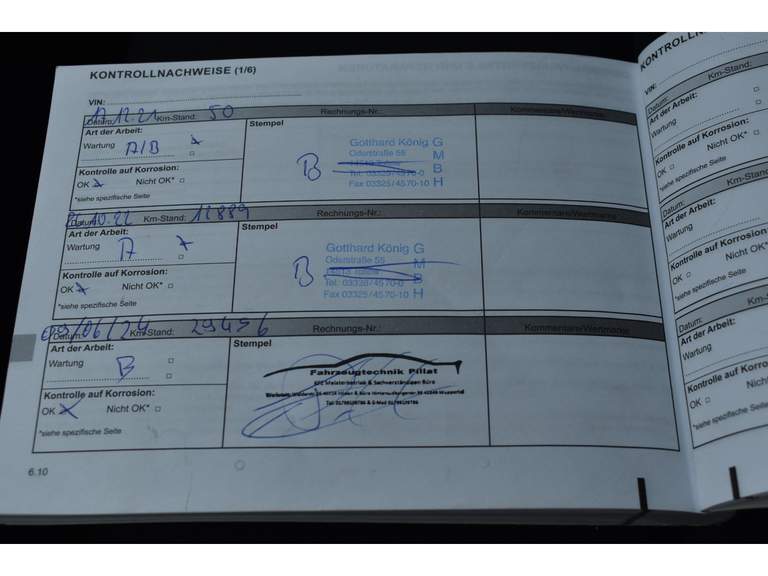 KONTROLLNACHWEISE (1/6)
VIN:
17.12.21 Km-Stand: 50 Rechnungs-Nr.: Kommentare/Wertmarke
Datum:
Art der Arbeit: Stempel
Wartung A/B
Gotthard König G
Oderstraße 55 M
B B
Tel. 03328/4570-0
Fax 03325/4570-10 H
Kontrolle auf Korrosion:
OK Nicht OK*
*siehe spezifische Seite
10.22 Km-Stand: 12889 Rechnungs-Nr.: Kommentare/Wertmarke
Datum:
Art der Arbeit: Stempel
Wartung A
Gotthard König G
Oderstraße 55 M
B B
Tel. 03328/4570-0
Fax 03325/4570-10 H
Kontrolle auf Korrosion:
OK Nicht OK*
*siehe spezifische Seite
/06/24 Km-Stand: 29456 Rechnungs-Nr.: Kommentare/Wertmarke
Datum:
Art der Arbeit: Stempel
Wartung B
Fahrzeugtechnik Pillat
KFZ Meisterbetrieb & Sachverständigen Büro
Kontrolle auf Korrosion:
OK Nicht OK*
*siehe spezifische Seite
6.10
KONTROLLN
VIN:
Datum: Km-Stand:
Art der Arbeit:
Wartung
Kontrolle auf Korrosion:
OK Nicht OK*
*siehe spezifische Seite
Datum: Km-Stand
Art der Arbeit:
Wartung
Kontrolle auf Korrosion
OK Nicht OK*
*siehe spezifische Seite
Datum: Km-S
Art der Arbeit:
Wartung
Kontrolle auf Korrosion
OK Nicht OK*
*siehe spezifische Seite